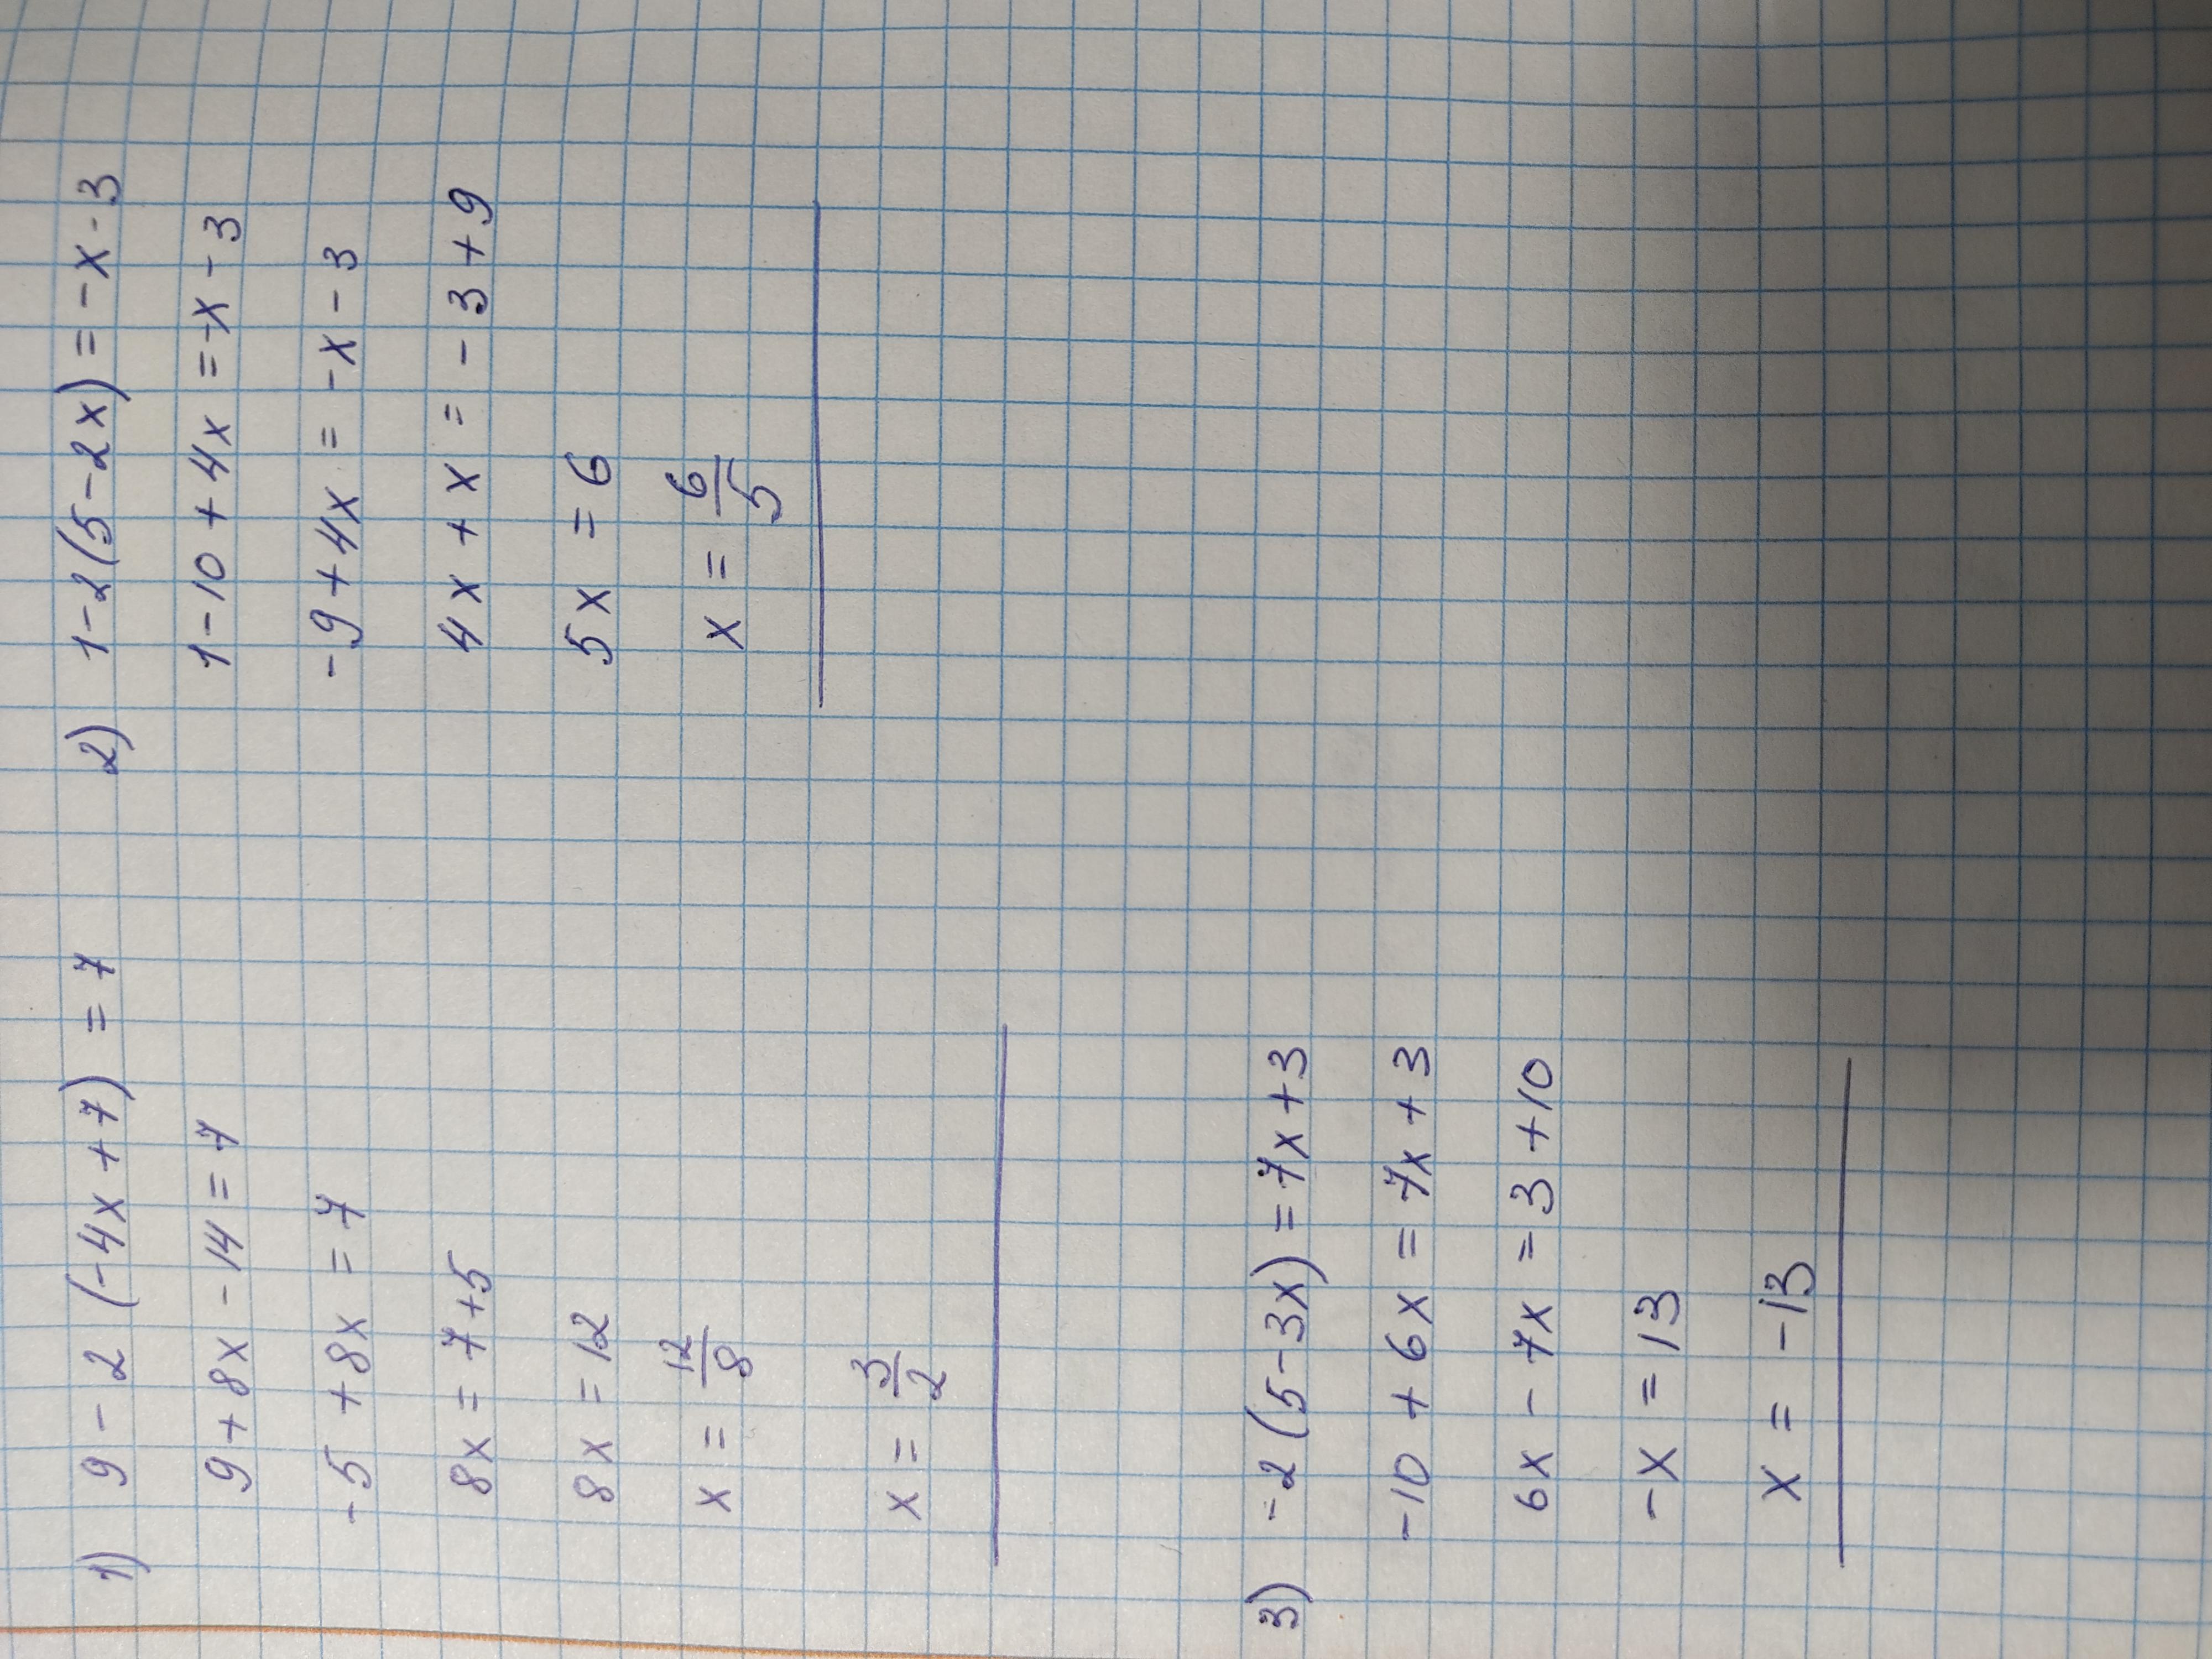 1) 9 - 2 (-4x + 7) = 7
9 + 8x - 14 = 7
-5 + 8x = 7
8x = 7 + 5
8x = 12
x = 12/8
x = 3/2
2) 1 - 2(5 - 2x) = -x - 3
1 - 10 + 4x = -x - 3
-9 + 4x = -x - 3
4x + x = -3 + 9
5x = 6
x = 6/5
3) -2 (5 - 3x) = 7x + 3
-10 + 6x = 7x + 3
6x - 7x = 3 + 10
-x = 13
x = -13